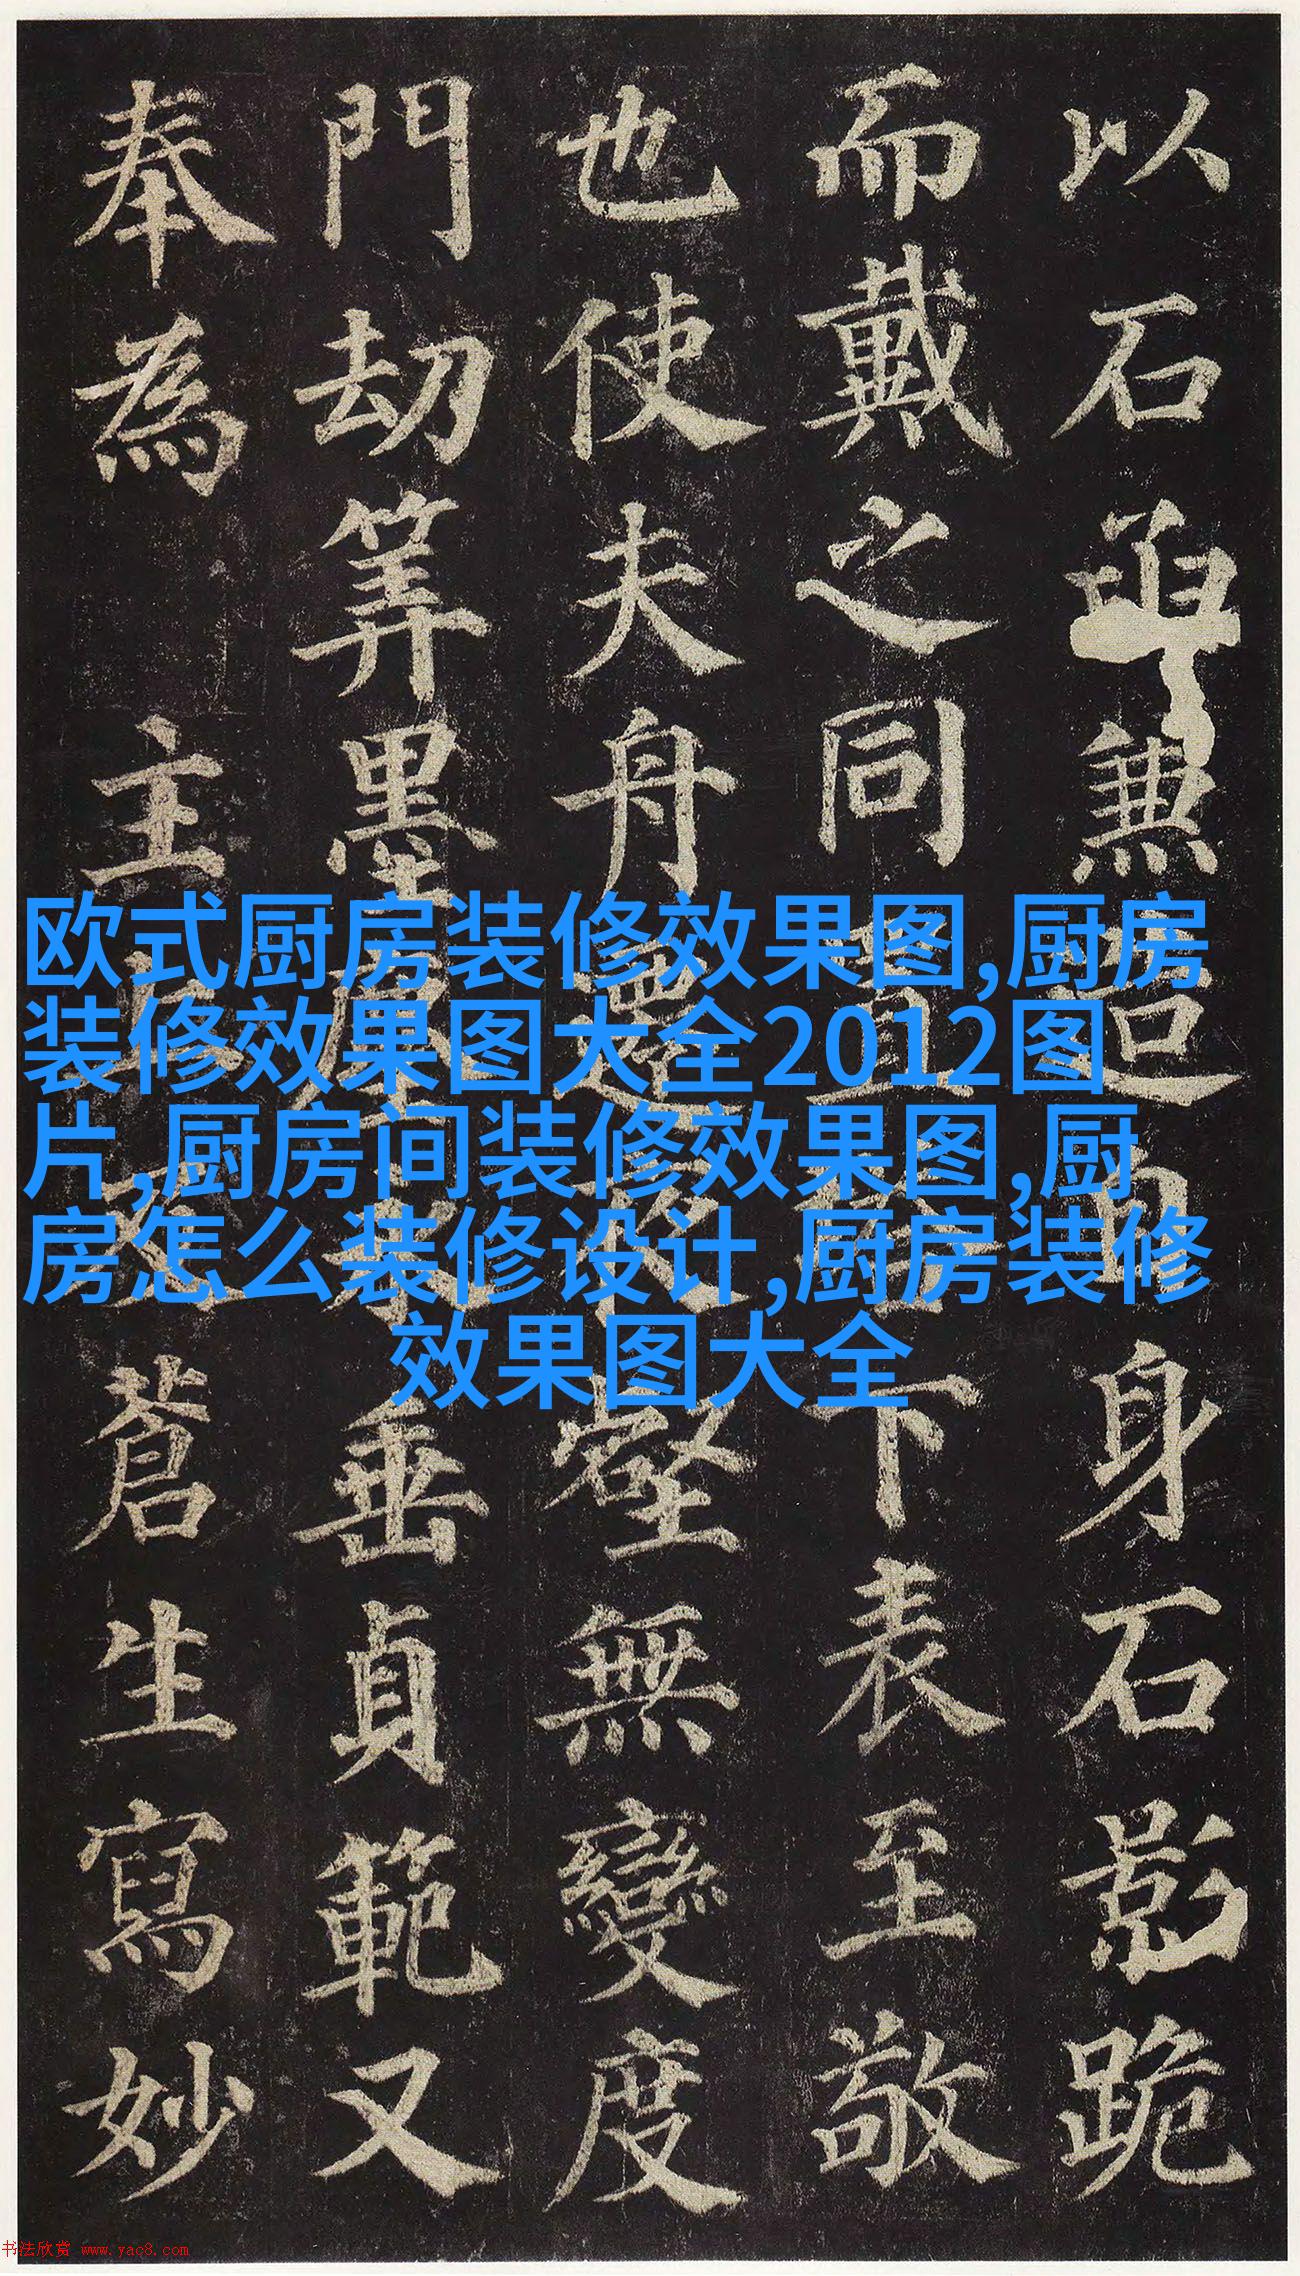 以石函兼造自身石影跪
而戴之同置塔下表至敬
也使夫舟遷夜壑無變度
門劫筭墨塵永垂貞範又
奉為主上及蒼生寫妙
欧式厨房装修效果图,厨房
装修效果图大全2012图
片,厨房间装修效果图,厨
房怎么装修设计,厨房装修
效果图大全
书法欣赏 www.yac8.com